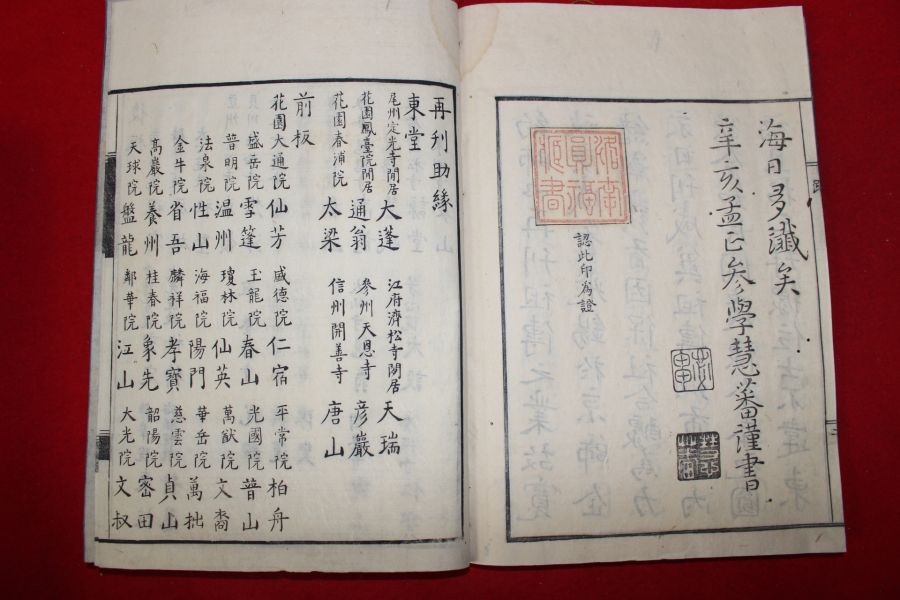 海日多瀸矣
辛亥孟正參學慧蕃謹書
認此印爲證
再刊助緣
東堂
尾州定光寺閑居 大蓬 江府濟松寺閑居 天瑞
花園鳳臺院閑居 通翁 參州天恩寺 彦巖
花園春浦院 太梁 信州開善寺 唐山
前板
花園大通院 仙芳 盛德院 仁宿 平常院 柏舟
盛岳院 雪篷 玉龍院 春山 光國院 普山
普明院 温州 瓊林院 仙英 萬猷院 文裔
法泉院 性山 海福院 陽門 華岳院 萬拙
金牛院 省吾 麟祥院 孝寶 慈雲院 貞山
高巖院 養州 桂春院 象先 韶陽院 密田
天球院 盤龍 鄰華院 江山 大光院 文叔